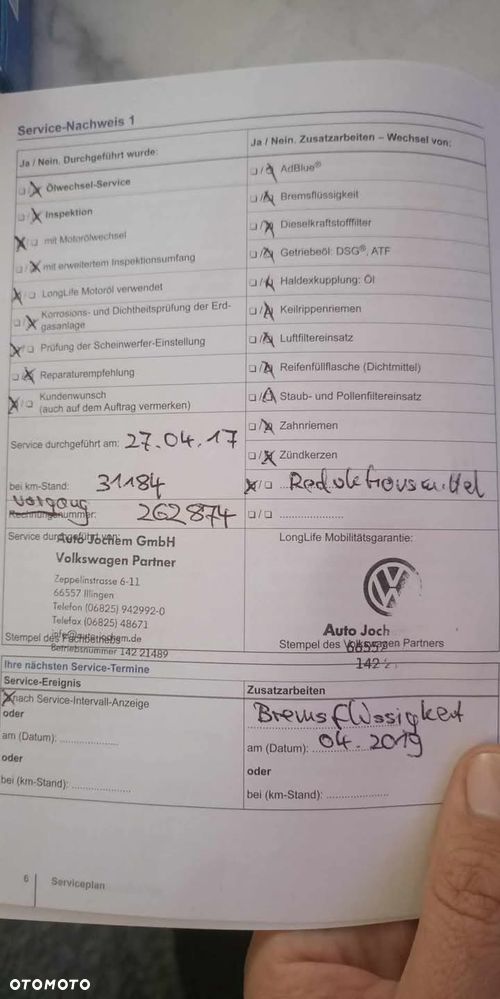 Service-Nachweis 1
Ja / Nein. Durchgeführt wurde:
Ölwechsel-Service
Inspektion
mit Motorölwechsel
mit erweitertem Inspektionsumfang
LongLife Motoröl verwendet
Korrosions- und Dichtheitsprüfung der Erd-
gasanlage
Prüfung der Scheinwerfer-Einstellung
Reparaturempfehlung
Kundenwunsch
(auch auf dem Auftrag vermerken)
Service durchgeführt am: 27.04.17
bei km-Stand: 31184
Vorgang
Rechnungsnummer: 262874
Service durchgeführt von:
Auto Jochem GmbH
Volkswagen Partner
Zeppelinstrasse 6-11
66557 Illingen
Telefon (06825) 942992-0
Telefax (06825) 48671
info@autojochem.de
Stempel des Fachbetriebs
Betriebsnummer 142 21489
Ja / Nein. Zusatzarbeiten – Wechsel von:
AdBlue®
Bremsflüssigkeit
Dieselkraftstofffilter
Getriebeöl: DSG®, ATF
Haldexkupplung: Öl
Keilrippenriemen
Luftfiltereinsatz
Reifenfüllflasche (Dichtmittel)
Staub- und Pollenfiltereinsatz
Zahnriemen
Zündkerzen
Reduktionsmittel
LongLife Mobilitätsgarantie:
Auto Joch
66557
Stempel des Volkswagen Partners
142 2
Ihre nächsten Service-Termine
Service-Ereignis
nach Service-Intervall-Anzeige
oder
am (Datum): ....................
oder
bei (km-Stand): ....................
Zusatzarbeiten
Bremsflüssigkeit
am (Datum): 04.2019
oder
bei (km-Stand): ....................
6
Serviceplan
OTOMOTO